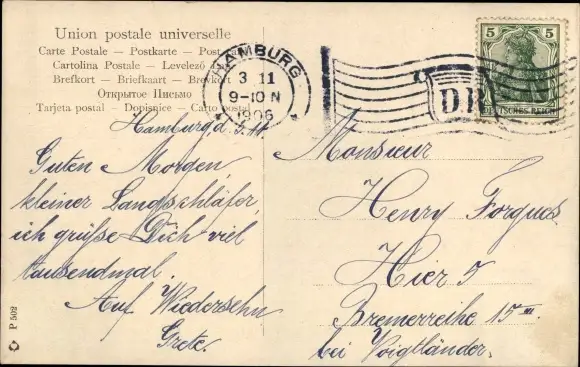 Union postale universelle
Carte Postale — Postkarte — Post
Cartolina Postale — Levelező
Brefkort — Briefkaart — Brevkort
Открытое Письмо
Tarjeta postal — Dopisnice — Carto postal
HAMBURG
3 11
9-10 N
1906
D.R.
5 5
DEUTSCHES REICH
Hamburg d. 3.11
Guten Morgen,
kleiner Langschläfer,
ich grüße Dich viel
tausendmal.
Auf Wiedersehn
Grete.
Monsieur
Henry Forgues
Hier 5
Bremerreihe 15 III.
bei Voigtländer.
P 502